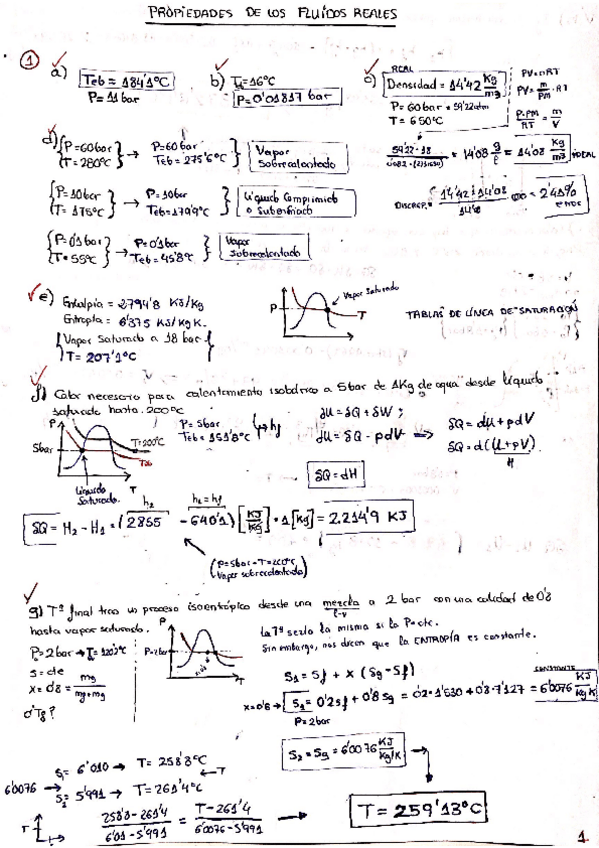 PROPIEDADES DE LOS FLUIDOS REALES
1
a) Teb = 184'1ºC
P = 11 bar
b) T = 16ºC
P = 0'01817 bar
c) REAL
Densidad = 14'42 kg/m3
P = 60 bar = 59'22 atm
T = 650ºC
PV = nRT
PV = m/PM · RT
P·PM/RT = m/V
= 14'08 g/l = 14'08 kg/m3 IDEAL
d) P = 60 bar
T = 280ºC → P = 60 bar
Teb = 275'6ºC Vapor Sobrecalentado
P = 10 bar
T = 175ºC → P = 10 bar
Teb = 179'9ºC Líquido Comprimido o Subenfriado
DISCREP. = 14'42 - 14'08 = 2'41% error
P = 0'1 bar
T = 55ºC → P = 0'1 bar
Teb = 45'8ºC Vapor sobrecalentado
e) Entalpia = 2794'8 KJ/Kg
Entropía = 6'375 KJ/Kg K.
Vapor Saturado a 18 bar
T = 207'1ºC
P
Vapor Saturado
T
TABLAS DE LÍNEA DE SATURACIÓN
f) Calor necesario para calentamiento isobárico a 5 bar de 1 Kg de agua desde líquido
saturado hasta 200ºC
P
5 bar
T=200ºC
T
Líquido Saturado.
P = 5 bar
Teb = 151'8ºC → hf
dU = δQ + δW ;
dU = δQ - pdV ⟹ δQ = dU + pdV
δQ = d(U + pV)
H
δQ = dH
δQ = H2 - H1 = (2855 - 640'1) [KJ/Kg] · 1 [Kg] = 2.214'9 KJ
h2
h1 = hf
(P=5bar - T=200ºC
Vapor sobrecalentado)
g) Tª final tras un proceso isoentrópico desde una mezcla a 2 bar con una calidad de 0'8
l-v
hasta vapor saturado.
P = 2 bar → T = 120'2ºC
S = cte
x = 0'8 = mg/mf+mg
¿Tf?
P
P=2bar
T
La Tª sería la misma si la P=cte.
Sin embargo, nos dicen que la ENTROPÍA es constante.
S1 = Sf + x (Sg - Sf)
x = 0'8 → S1 = 0'2 Sf + 0'8 Sg = 0'2·1'530 + 0'8·7'127 = 6'0076 KJ/Kg K
CONSTANTE
P = 2 bar
S2 = Sg = 6'0076 KJ/Kg K
6'0076 → S1 = 6'010 → T = 258'8ºC
S2 = 5'991 → T = 261'4ºC
258'8-261'4 / 6'01-5'991 = T-261'4 / 6'0076-5'991 →
T = 259'13ºC
1